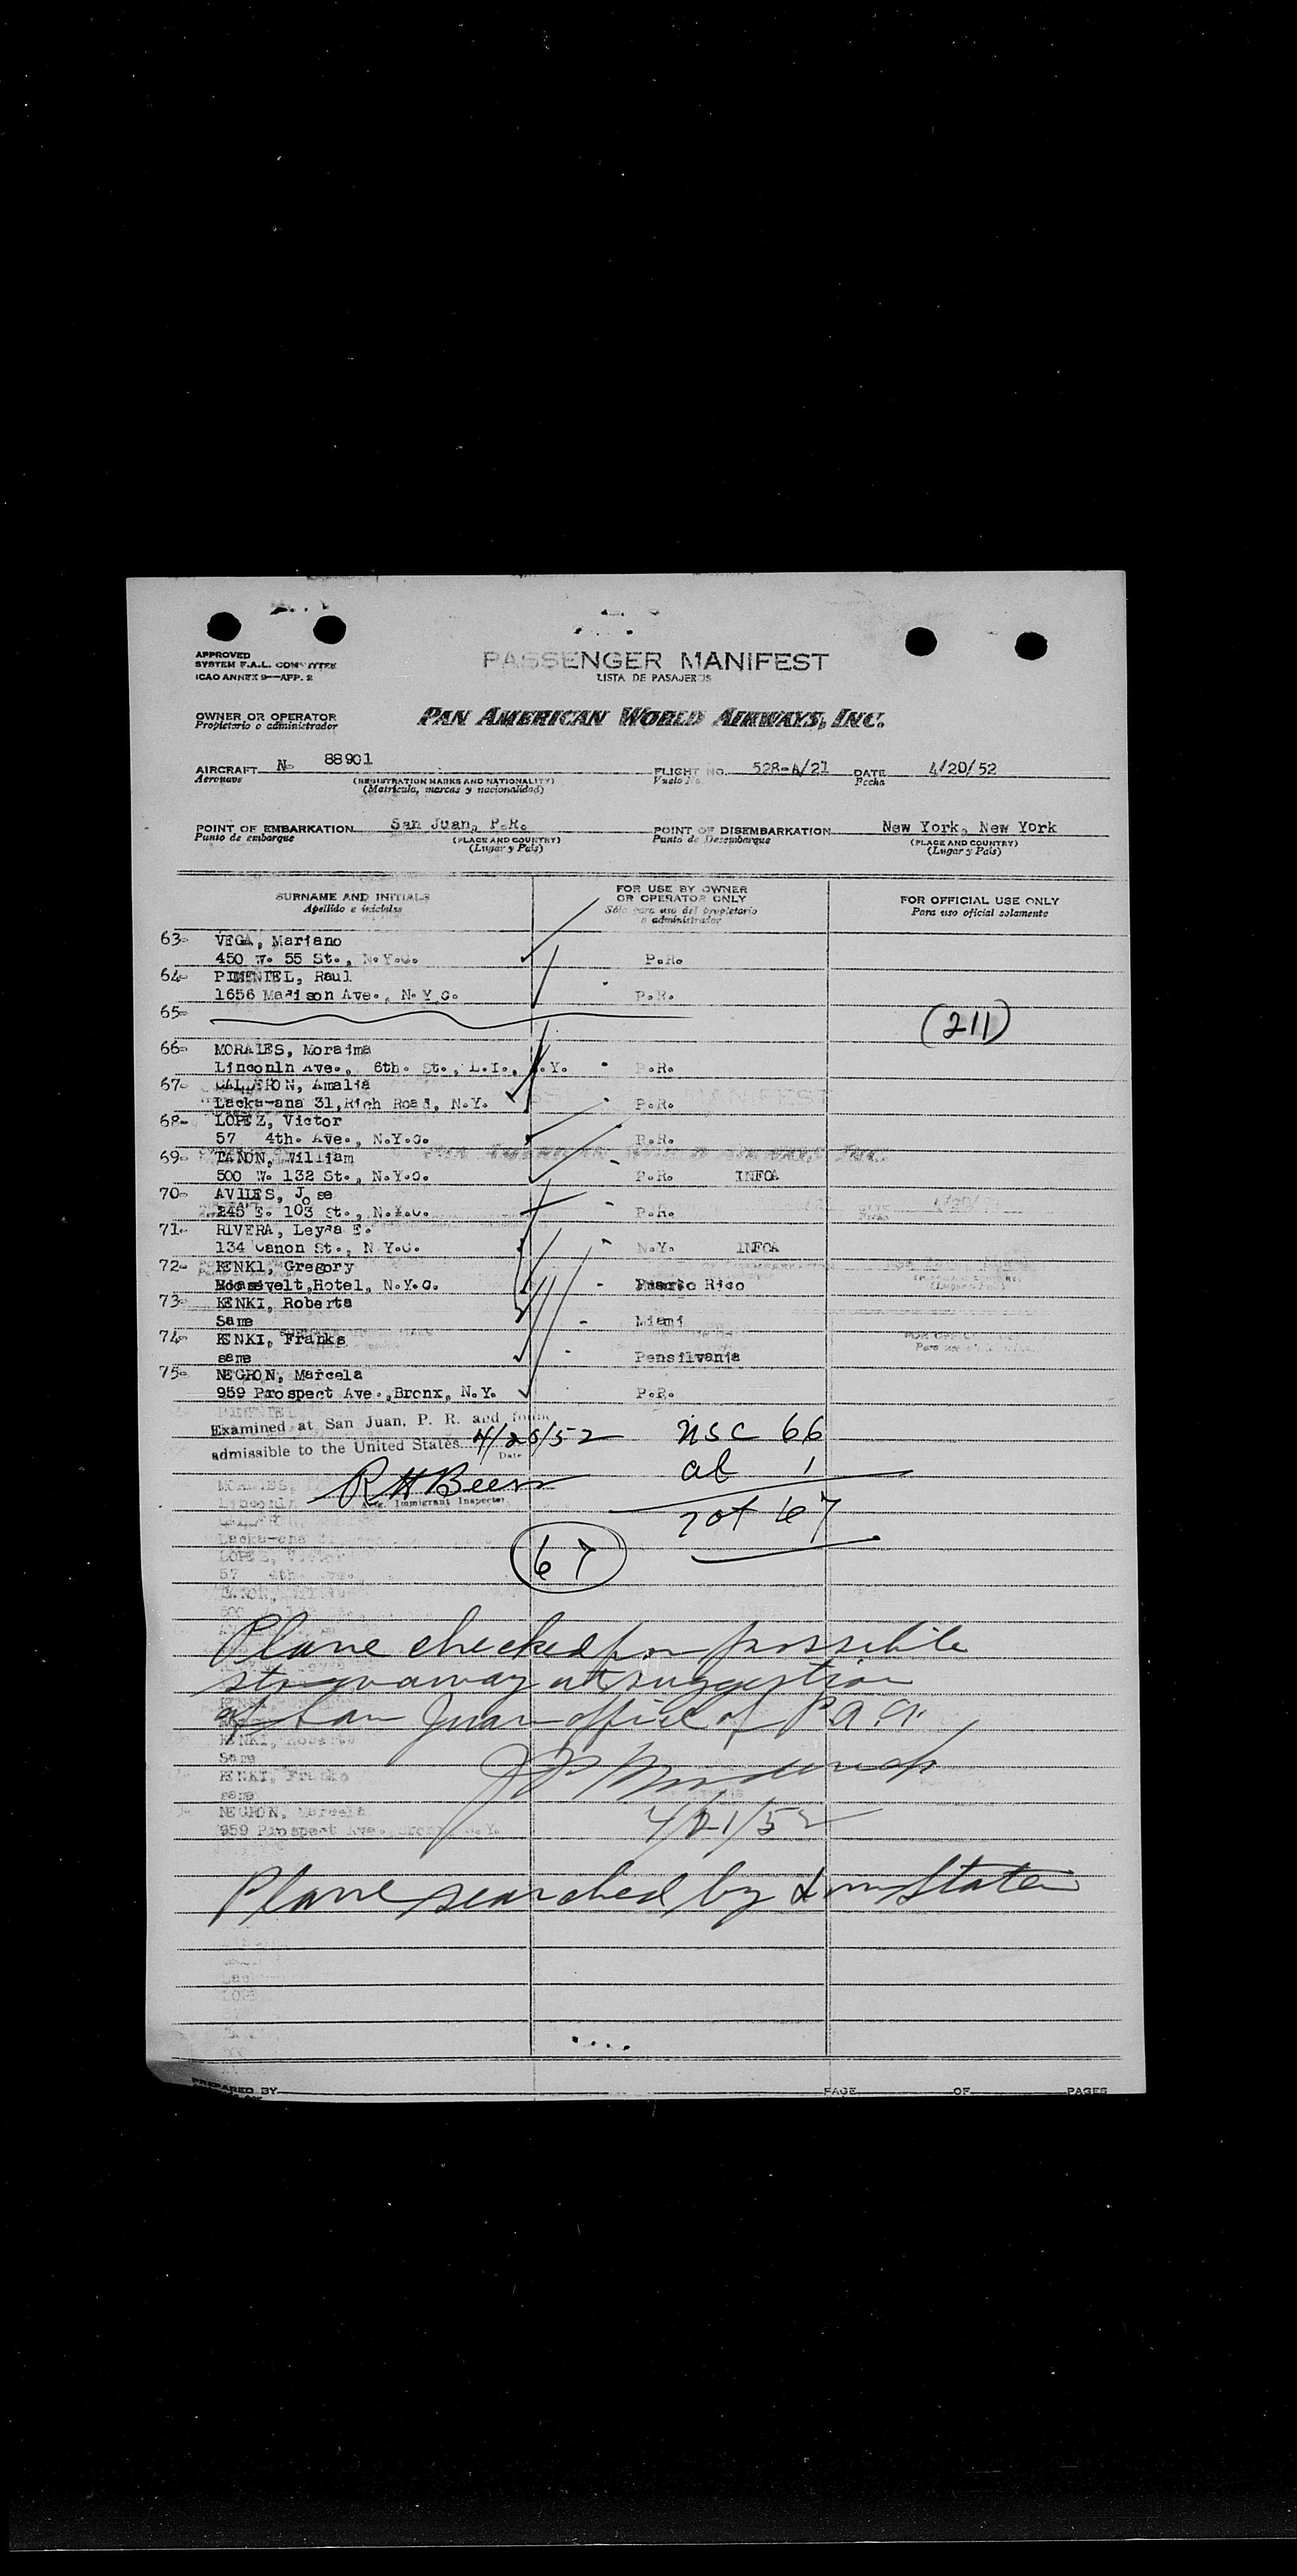 APPROVED
SYSTEM F.A.L. COMMITTEE
ICAO ANNEX 9—APP. 2
PASSENGER MANIFEST
LISTA DE PASAJEROS
OWNER OR OPERATOR
Propietario o administrador
PAN AMERICAN WORLD AIRWAYS, INC.
AIRCRAFT N- 88901 FLIGHT NO. 528-A/21 DATE 4/20/52
Aeronave (REGISTRATION MARKS AND NATIONALITY) Vuelo No. Fecha
(Matricula, marcas y nacionalidad)
POINT OF EMBARKATION San Juan, P.R. POINT OF DISEMBARKATION New York, New York
Punto de embarque (PLACE AND COUNTRY) Punto de Desembarque (PLACE AND COUNTRY)
(Lugar y Pais) (Lugar y Pais)
SURNAME AND INITIALS FOR USE BY OWNER OR OPERATOR ONLY FOR OFFICIAL USE ONLY
Apellido e iniciales Sólo para uso del propietario o administrador Para uso oficial solamente
63- VEGA, Mariano
450 W. 55 St., N.Y.C. P.R.
64- PIMENTEL, Raul
1656 Madison Ave., N.Y.C. P.R.
65-
(211)
66- MORALES, Moraima
Linconln Ave., 6th. St., L.I., N.Y. P.R.
67- CALDERON, Amalia
Lacka-ana 31, Rich Road, N.Y. P.R.
68- LOPEZ, Victor
57 4th. Ave., N.Y.C. P.R.
69- William
500 W. 132 St., N.Y.C. P.R. INFOA
70- AVILES, Jose
246 E. 103 St., N.Y.C. P.R.
71- RIVERA, Leyda E.
134 Canon St., N.Y.C. N.Y. INFOA
72- KENKI, Gregory
Roosevelt, Hotel, N.Y.C. Puerto Rico
73- KENKI, Roberta
Same Miami
74- KENKI, Franks
same Pensilvania
75- NEGRON, Marcela
959 Prospect Ave., Bronx, N.Y. P.R.
Examined at San Juan, P. R. and found
admissible to the United States 4/20/52
Date
Immigrant Inspector
USC 66
al 1
tot 67
67
Plane checked for possible
stowaway at suggestion
of San Juan office of P.A.A.
4/21/52
Plane searched by
PREPARED BY PAGE OF PAGES